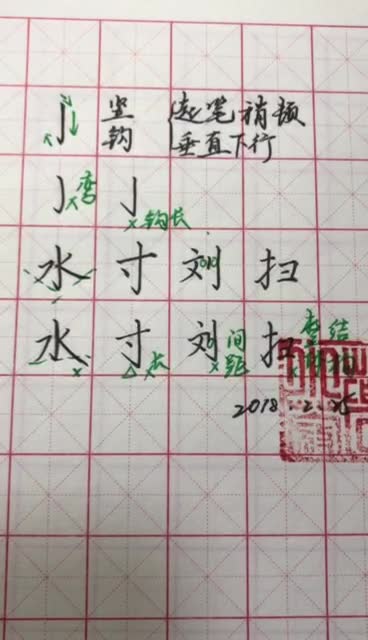 亅 竖 起笔稍顿
钩 垂直下行
亅 弯 亅 钩长
水 寸 刘 扫
水 寸 长 刘 间距 扫 结构
2018